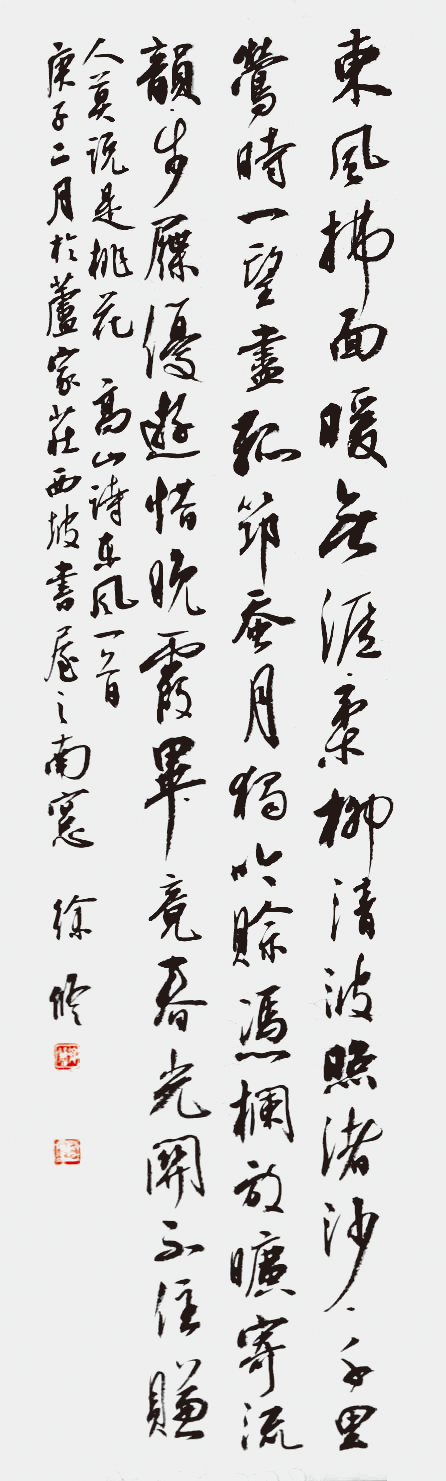 東風拂面暖無涯柔柳清波照渚沙千里
鶯時一望盡孤筇蚕月獨吟賒憑欄放曠寄流
韻步屧優遊惜晚霞畢竟春光關不住賺
人莫說是桃花 高山詩東風一首
庚子二月於蘆家莊西坡書屋之南窻 徐